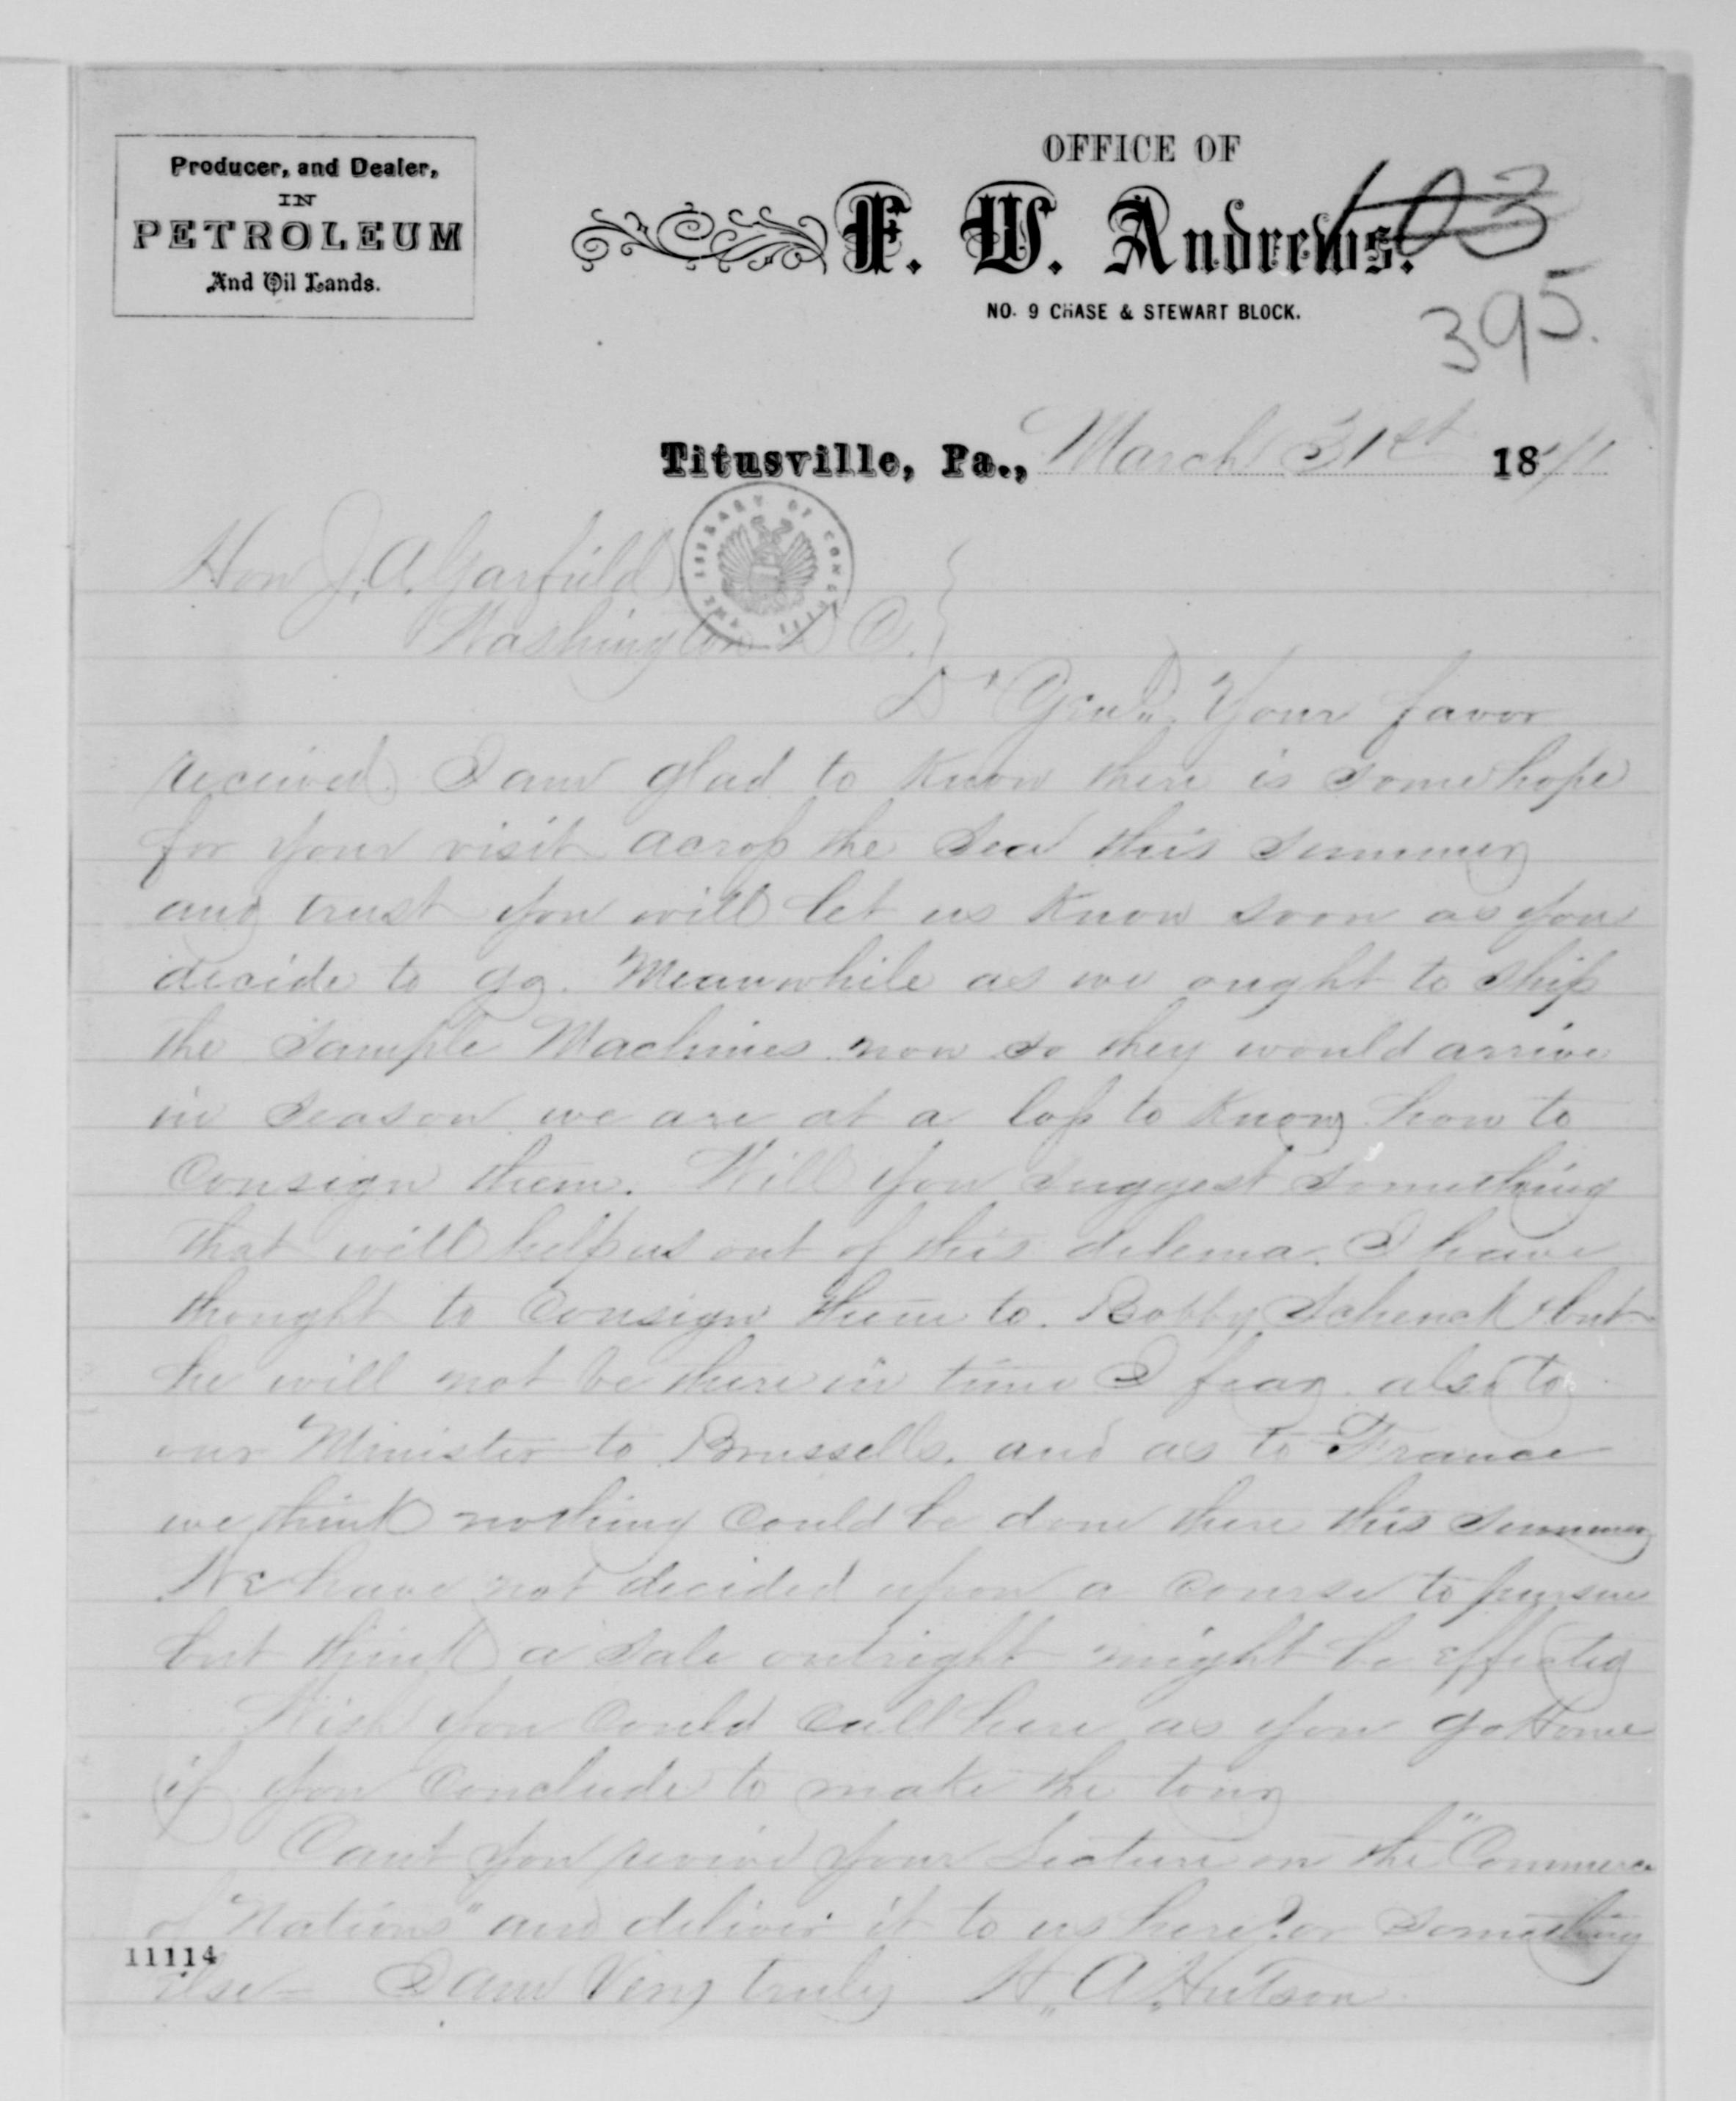 Producer, and Dealer,
IN
PETROLEUM
And Oil Lands.
OFFICE OF
F. W. Andrews.
103
NO. 9 CHASE & STEWART BLOCK.
395.
Titusville, Pa., March 31st 1871
THE LIBRARY OF CONGRESS
Hon J. A. Garfield
Washington D C.
Dr Genl. Your favor
received. I am glad to know there is some hope
for your visit across the Sea this summer
and trust you will let us know soon as you
decide to go. Meanwhile as we ought to ship
the Sample Machines now so they would arrive
in season we are at a loss to know how to
Consign them. Will you suggest something
that will help us out of this dilema. I have
thought to Consign them to Bobby Schenck but
he will not be there in time I fear also to
our Minister to Brussells. and as to France
we think nothing could be done there this summer
We have not decided upon a course to pursue
but think a sale outright might be effected
Wish you could call here as you go Home
if you Conclude to make the tour
Cant you revive your Lecture on the "Commerce
of Nations" and deliver it to us here? or something
else - I am Very truly H. A. Hutson
11114